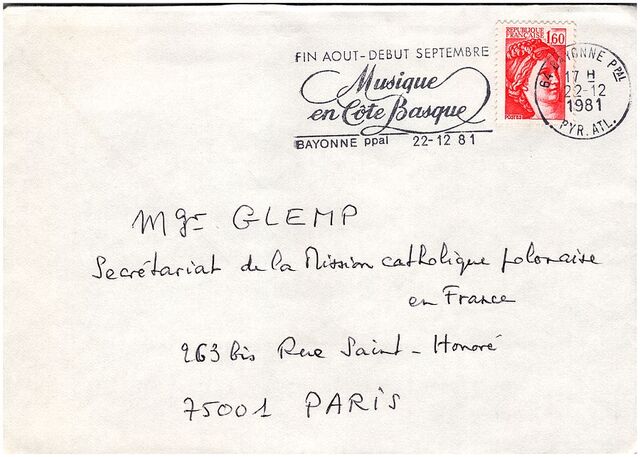 FIN AOUT-DEBUT SEPTEMBRE
Musique
en Côte Basque
BAYONNE ppal 22-12 81
REPUBLIQUE
FRANÇAISE 1,60
POSTES
64 BAYONNE PPAL
17 H
22-12
1981
PYR. ATL.
Mgr GLEMP
Secrétariat de la Mission catholique polonaise
en France
263 bis Rue Saint-Honoré
75001 PARIS